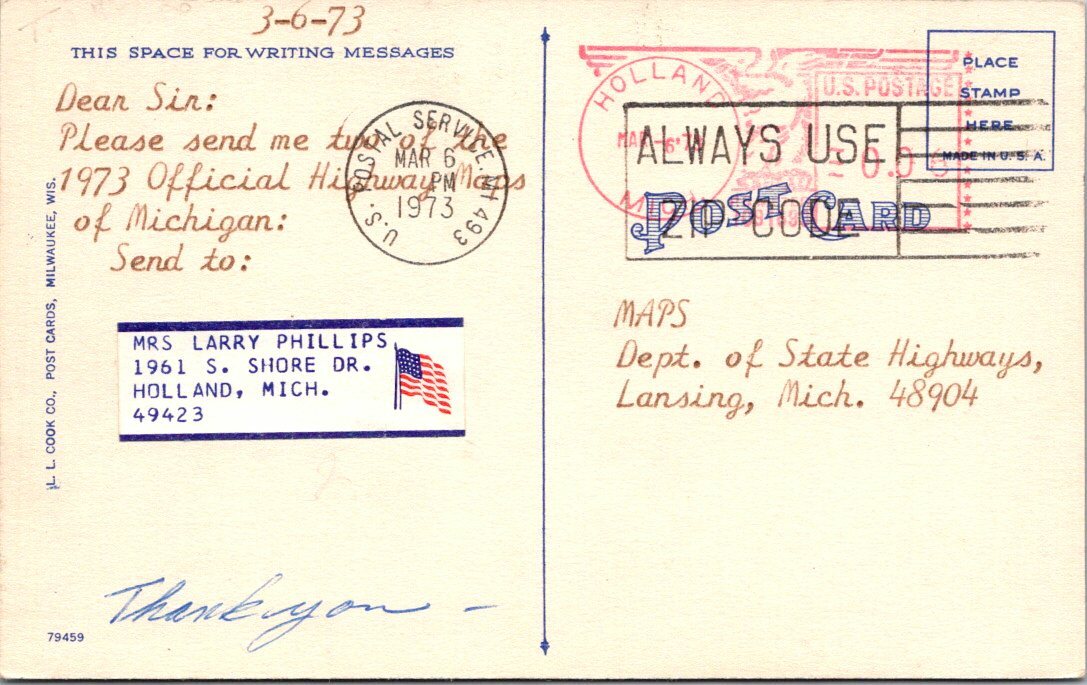 3-6-73
THIS SPACE FOR WRITING MESSAGES
Dear Sir:
Please send me two of the
1973 Official Highway Maps
of Michigan:
Send to:
MRS LARRY PHILLIPS
1961 S. SHORE DR.
HOLLAND, MICH.
49423
Thank you -
79459
L. L. COOK CO., POST CARDS, MILWAUKEE, WIS.
U.S. POSTAL SERVICE. MI 493
MAR 6
PM
1973
HOLLAND
MAR -6
MICH
U.S. POSTAGE
PLACE
STAMP
HERE
MADE IN U. S. A.
ALWAYS USE
ZIP CODE
POST CARD
MAPS
Dept. of State Highways,
Lansing, Mich. 48904